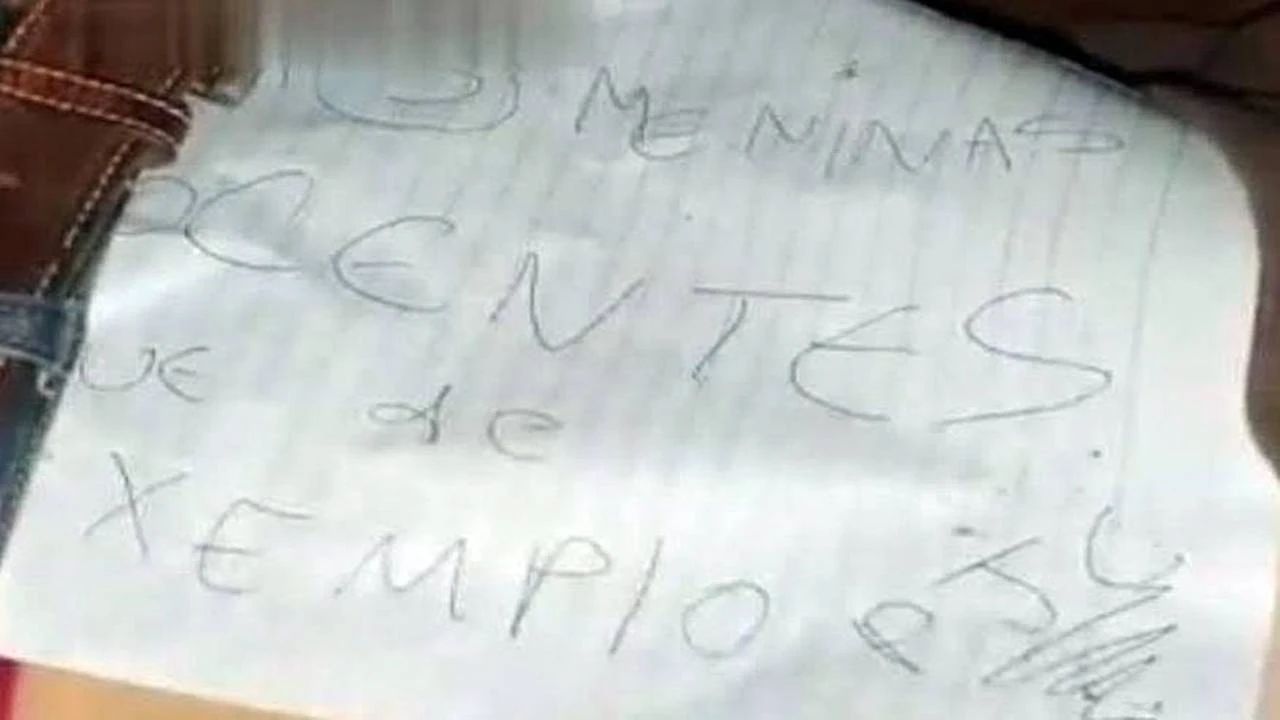 MENINAS
OCENTES
UE de
XEMPIO